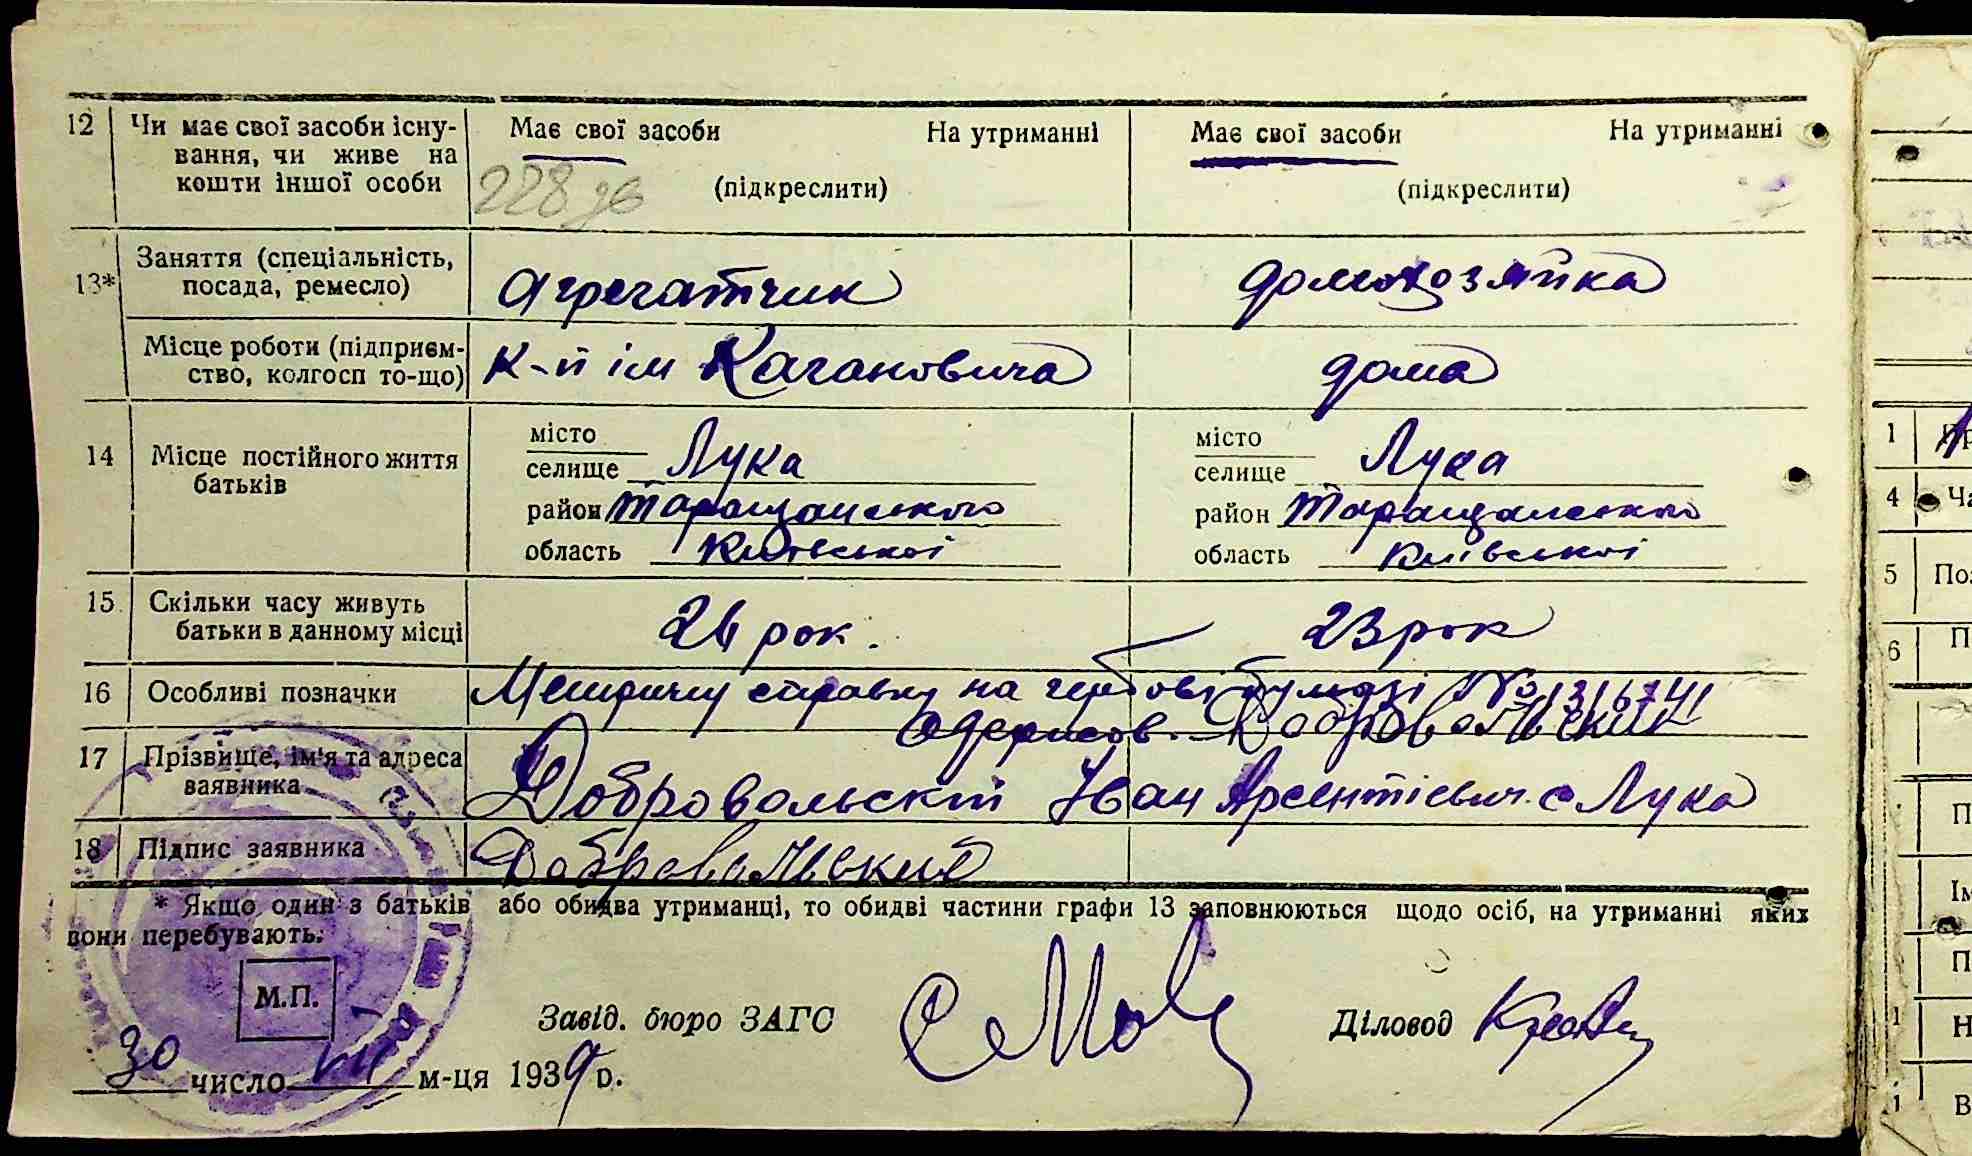 12 Чи має свої засоби існу- Має свої засоби На утриманні Має свої засоби На утриманні
вання, чи живе на
кошти іншої особи 228 (підкреслити) (підкреслити)
Заняття (спеціальність,
13* посада, ремесло) агрегатчик домохозяйка
Місце роботи (підприєм- к-п ім Кагановича дома
ство, колгосп то-що)
14 Місце постійного життя місто Лука місто Лука
батьків селище селище
район Таращанського район Таращанського
область Київської область Київської
15 Скільки часу живуть 24 рок. 23 рок
батьки в данному місці
16 Особливі позначки Метричну справку на гербові бумазі №
одержов. Добровольский
17 Прізвище, ім'я та адреса Добровольскій Іван Арсентієвич с Лука
заявника
18 Підпис заявника Добровольский
* Якщо один з батьків або обидва утриманці, то обидві частини графи 13 заповнюються щодо осіб, на утриманні яких
вони перебувають.
М.П.
Завід. бюро ЗАГС Діловод
30 число VII м-ця 1939 р.
1
4 Ча
5 Поз
6 П
П
Ім
П
1 Н
1 В